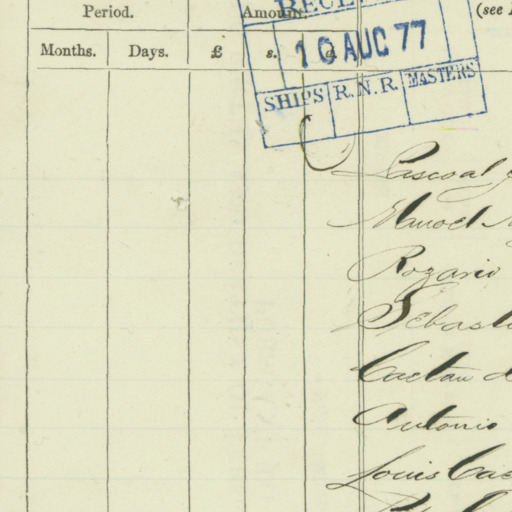 Period. Amount. (see
Months. Days. £ s. d.
10 AUC 77
SHIPS R. N. R. MASTERS
Pascoal
Manoel
Rozario
Sebasti
Caetan d
Antonio
Louis Cae